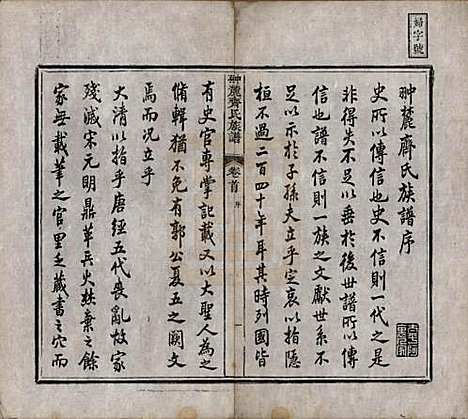 婦字號
翀麓齊氏族譜序
史所以傳信也史不信則一代之是
非得失不足以垂於後世譜所以傳
信也譜不信則一族之文獻世系不
足以示於子孫夫立乎定哀以指隱
桓不過二百四十年耳其時列國皆
翀麓齊氏族譜
卷首
序
一
有史官專掌記載又以大聖人為之
脩輯猶不免有郭公夏五之闕文
焉而况立乎
大清以指乎唐經五代喪亂故家
殘滅宋元明鼎革兵火焚棄之餘
家無載筆之官里乏藏書之穴而